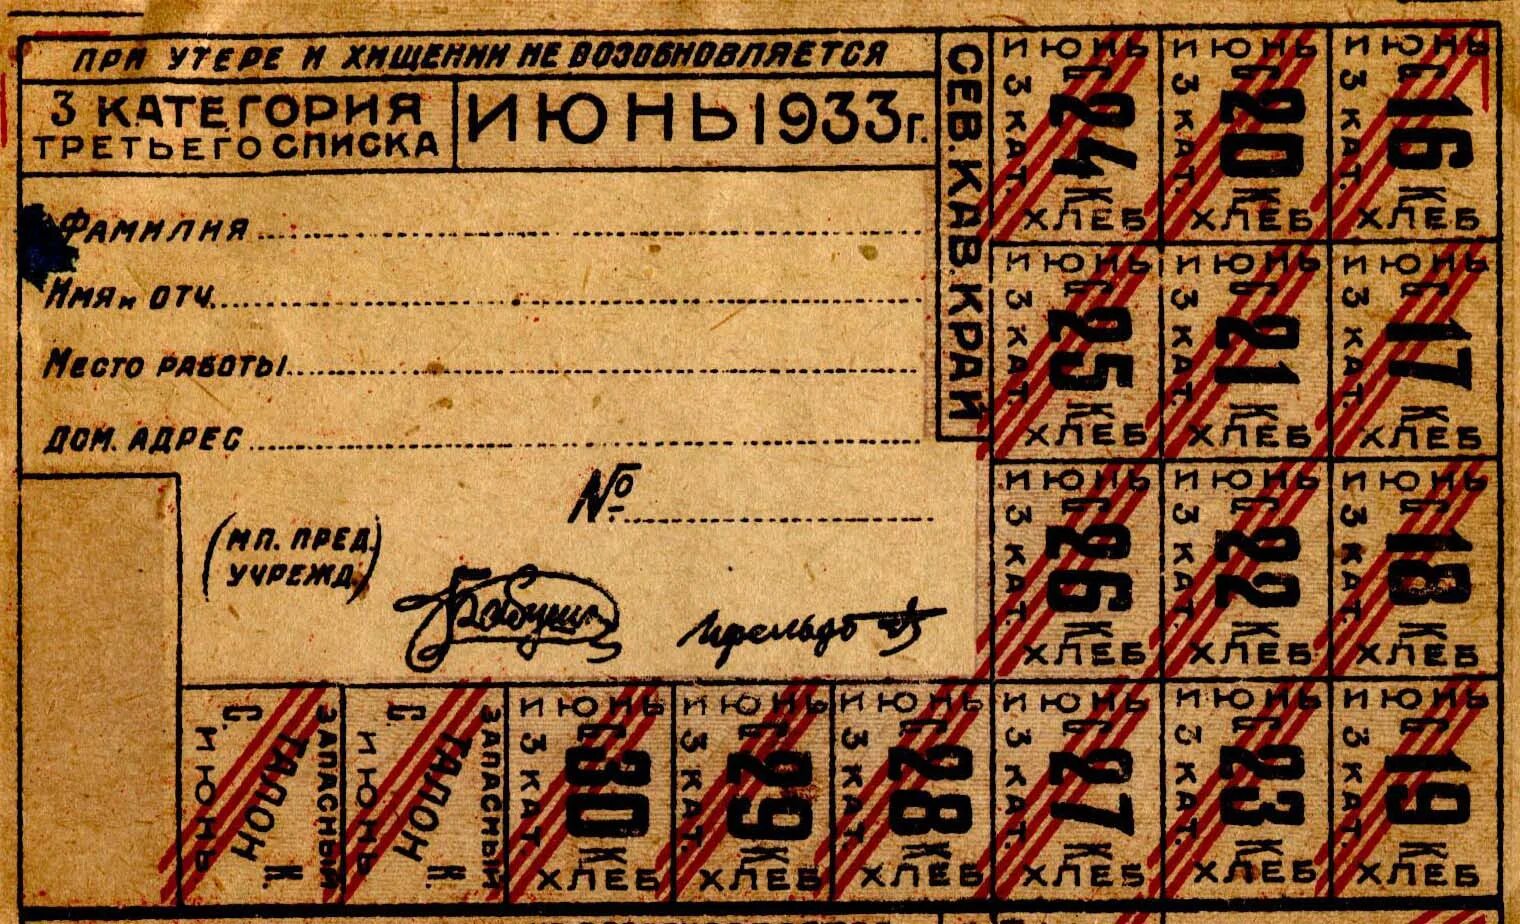 ПРИ УТЕРЕ И ХИЩЕНИИ НЕ ВОЗОБНОВЛЯЕТСЯ
3 КАТЕГОРИЯ
ТРЕТЬЕГО СПИСКА
ИЮНЬ 1933 г.
СЕВ. КАВ. КРАЙ
ФАМИЛИЯ
ИМЯ и ОТЧ.
МЕСТО РАБОТЫ
ДОМ. АДРЕС
№
(МП. ПРЕД.
УЧРЕЖД.)
ИЮНЬ
3 КАТ.
С 24 К
ХЛЕБ
ИЮНЬ
3 КАТ.
С 20 К
ХЛЕБ
ИЮНЬ
3 КАТ.
С 16 К
ХЛЕБ
ИЮНЬ
3 КАТ.
С 25 К
ХЛЕБ
ИЮНЬ
3 КАТ.
С 21 К
ХЛЕБ
ИЮНЬ
3 КАТ.
С 17 К
ХЛЕБ
ИЮНЬ
3 КАТ.
С 26 К
ХЛЕБ
ИЮНЬ
3 КАТ.
С 22 К
ХЛЕБ
ИЮНЬ
3 КАТ.
С 18 К
ХЛЕБ
ЗАПАСНЫЙ
ТАЛОН
С. К.
ИЮНЬ
ЗАПАСНЫЙ
ТАЛОН
С. К.
ИЮНЬ
ИЮНЬ
3 КАТ.
С 30 К
ХЛЕБ
ИЮНЬ
3 КАТ.
С 29 К
ХЛЕБ
ИЮНЬ
3 КАТ.
С 28 К
ХЛЕБ
ИЮНЬ
3 КАТ.
С 27 К
ХЛЕБ
ИЮНЬ
3 КАТ.
С 23 К
ХЛЕБ
ИЮНЬ
3 КАТ.
С 19 К
ХЛЕБ